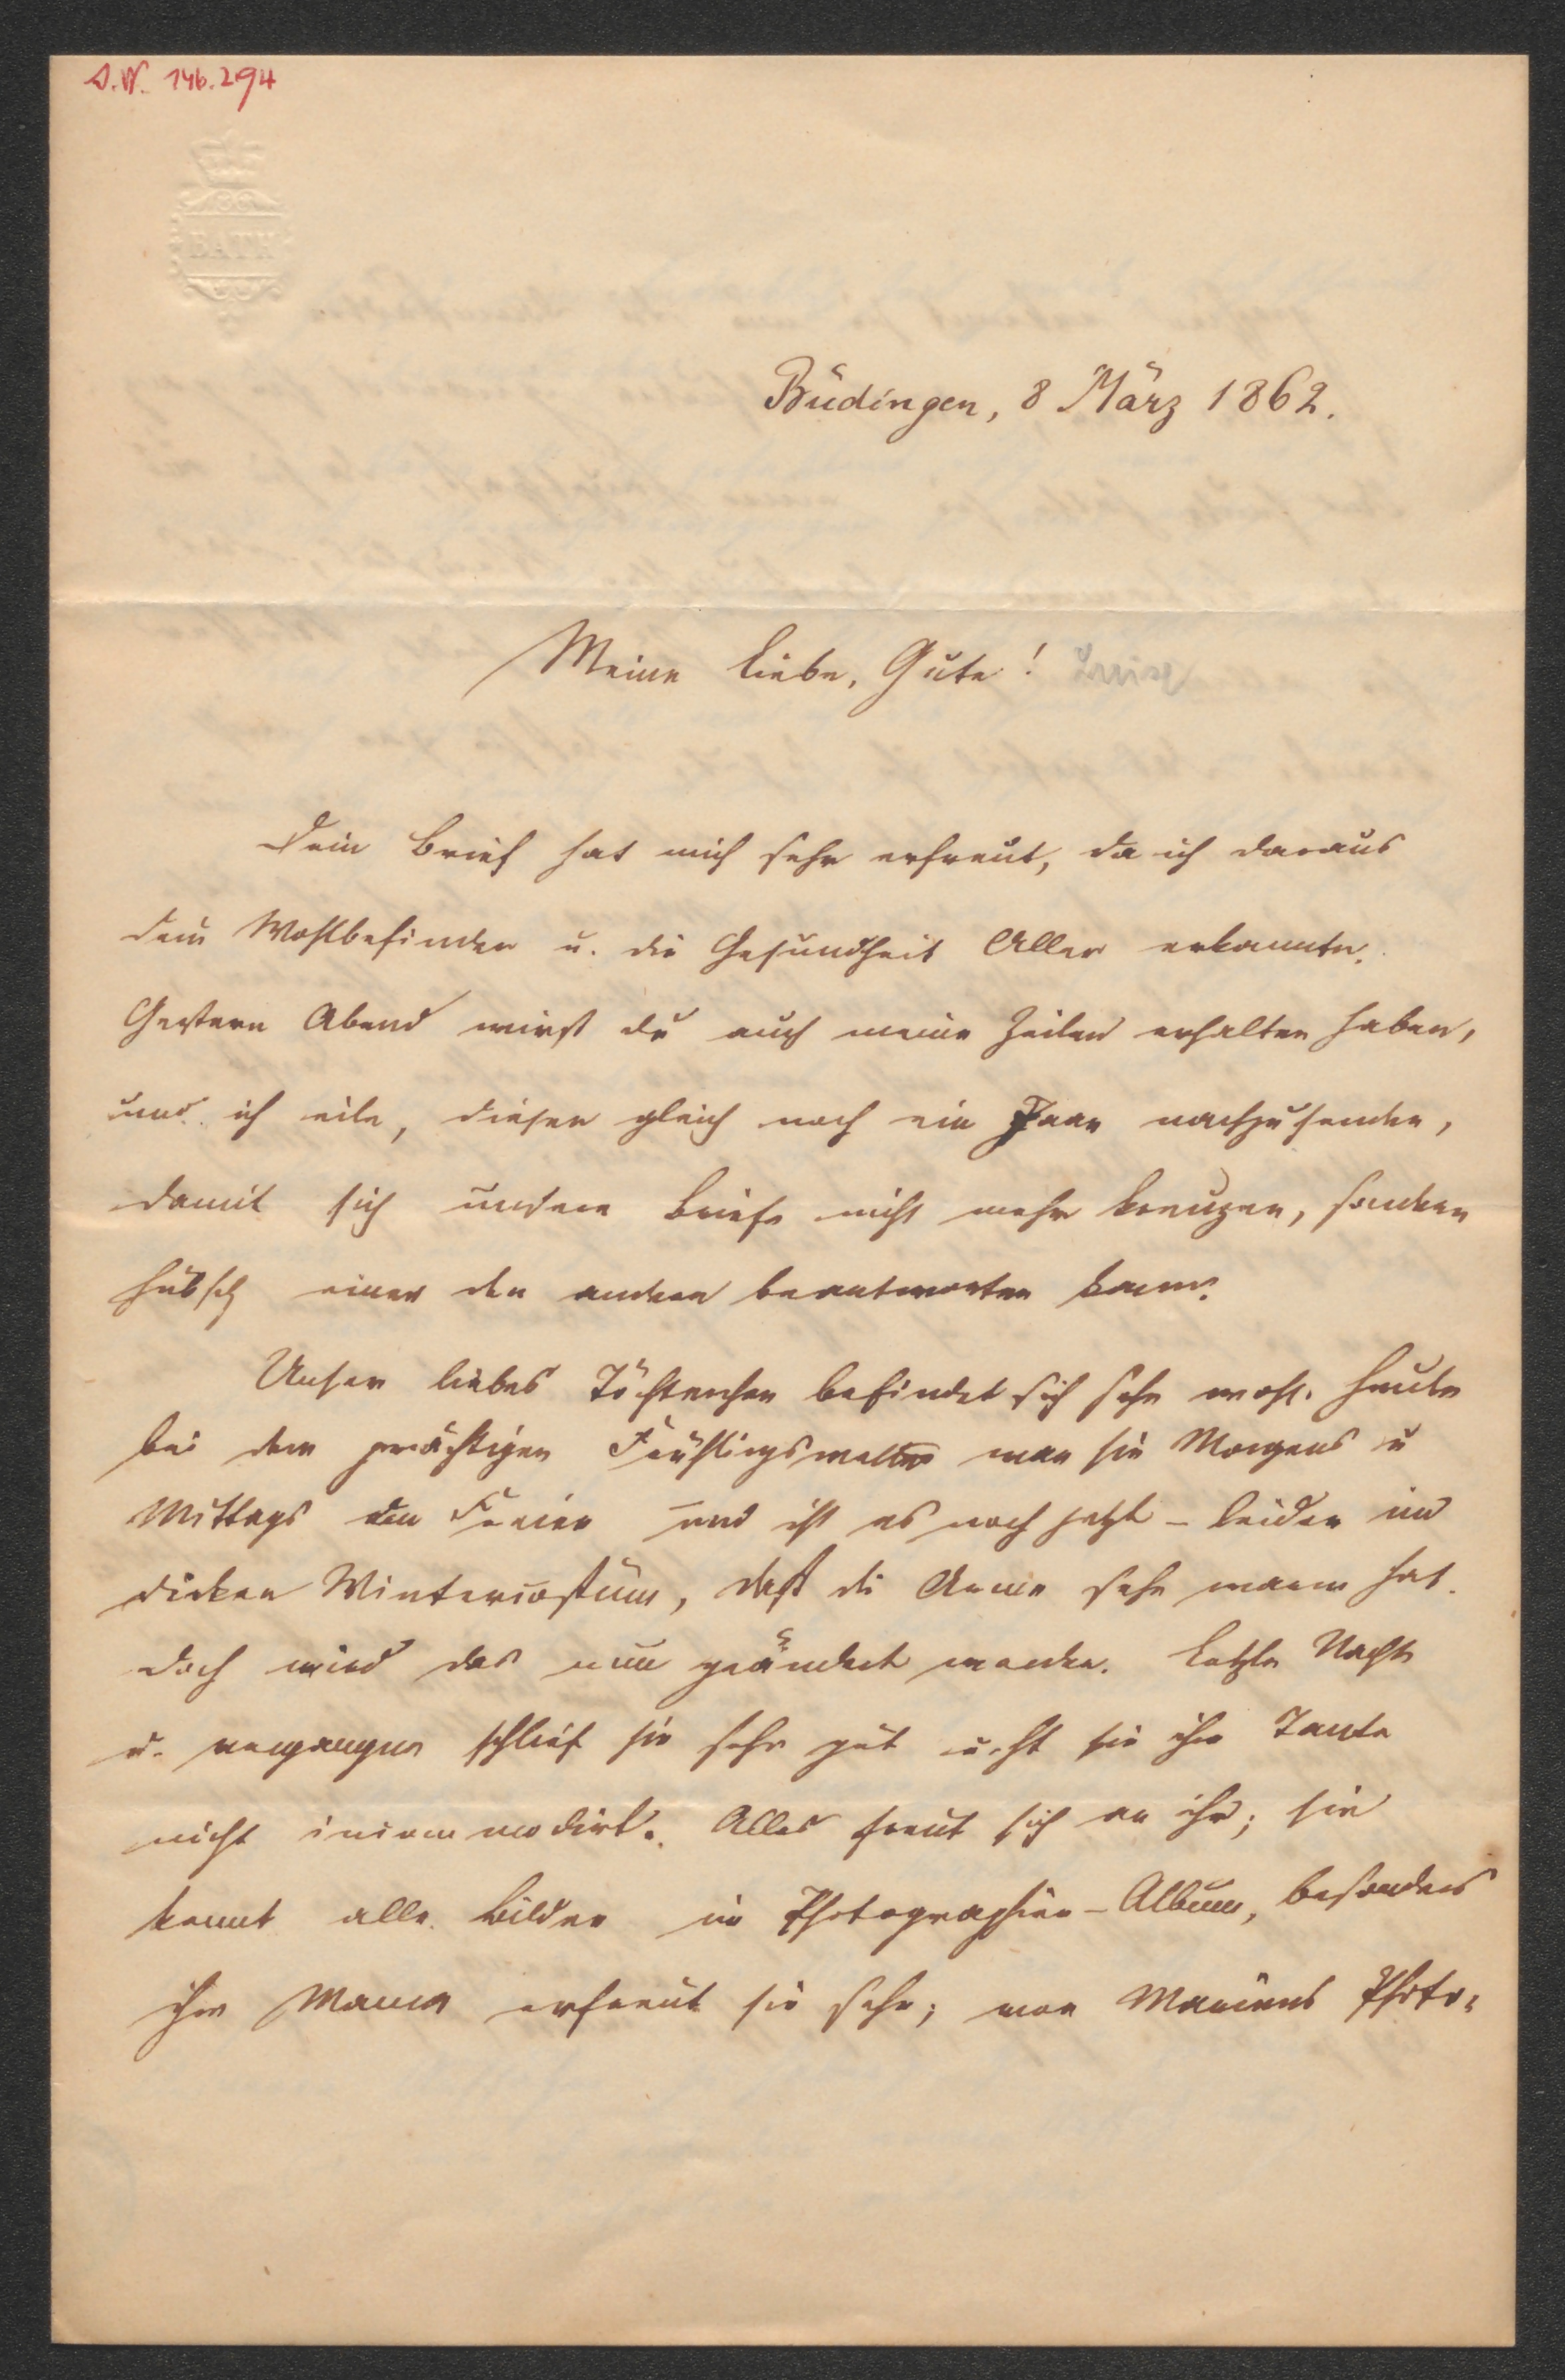 D.W. 146.294
BATH
Büdingen, 8 März 1862.
Meine liebe, Gute! Luise
Dein Brief hat mich sehr erfreut, da ich daraus
dein Wohlbefinden u. die Gesundheit Aller erkannte.
Gestern Abend wirst du auch meine Zeilen erhalten haben,
und ich eile, diesen gleich noch ein Paar nachzusenden,
damit sich unsere Briefe nicht mehr kreuzen, sondern
hübsch einer den andern beantworten kann.
Unser liebes Töchterchen befindet sich sehr wohl. Heute
bei dem prächtigen Frühlingswetter war sie Morgens u
Mittags im Freien und ist es noch jetzt – leider im
dicken Wintercostüm, daß die Arme sehr warm hat.
Doch wird das nun geändert werden. Letzte Nacht
u. vergangene schlief sie sehr gut u. hat sie ihre Tante
nicht incommodirt. Alles freut sich an ihr; sie
kennt alle Bilder im Photographien-Album, besonders
ihre Mama erfreut sie sehr; von Mariens Photo-